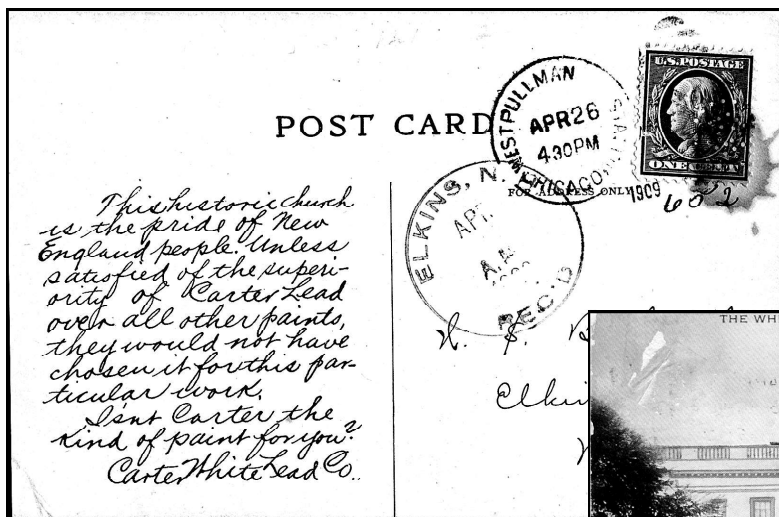 U.S. POSTAGE
ONE
POST CARD
WEST PULLMAN
APR 26
4 30 PM
CHICAGO
FOR ADDRESS ONLY
1909
ELKINS, N.
A.M.
REC'D
This historic church
is the pride of New
England people. Unless
satisfied of the superi-
ority of Carter Lead
over all other paints,
they would not have
chosen it for this par-
ticular work.
Isnt Carter the
kind of paint for you?
Carter White Lead Co.
H. S. B
Elki
THE WH